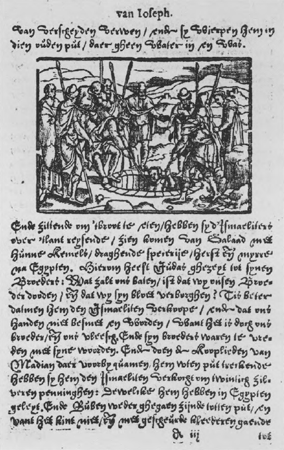 van Ioseph.
van verscheyden verwen / ende sy wierpen hem in
dien ouden put / daer gheen water in en was.
Ende zittende om 'tbroot te eten / hebben sy d'Ismaeliters
over 'tlant reysende / zien komen van Galaad met
hunne kemels / draghende specerije / herst eñ myrre
na Egypten. Hierom heeft Judas ghezeyt tot synen
Broeders: Wat zalt ons baten / ist dat wy onsen Broe-
der dooden / eñ dat wy syn bloet verborghen? Tis beter
datmen hem den Ismaeliten verkoope / ende dat ons
handen niet besmet en worden / want het is ons
broeder / eñ ons vleesch. Ende syn broeders waren te vre-
den met syne woorden. Ende doen de Kooplieden van
Madian daer voorby quamen, hem wten put treckende
hebben sy hem den Ismaeliten verkogt om twintig zil-
veren penninghen: Dewelke hem hebben in Egypten
geleyt. Ende Ruben weder ghegaen zijnde totten put / en
vant het kint niet / eñ met gescheurde kleederen gaende
iij tot